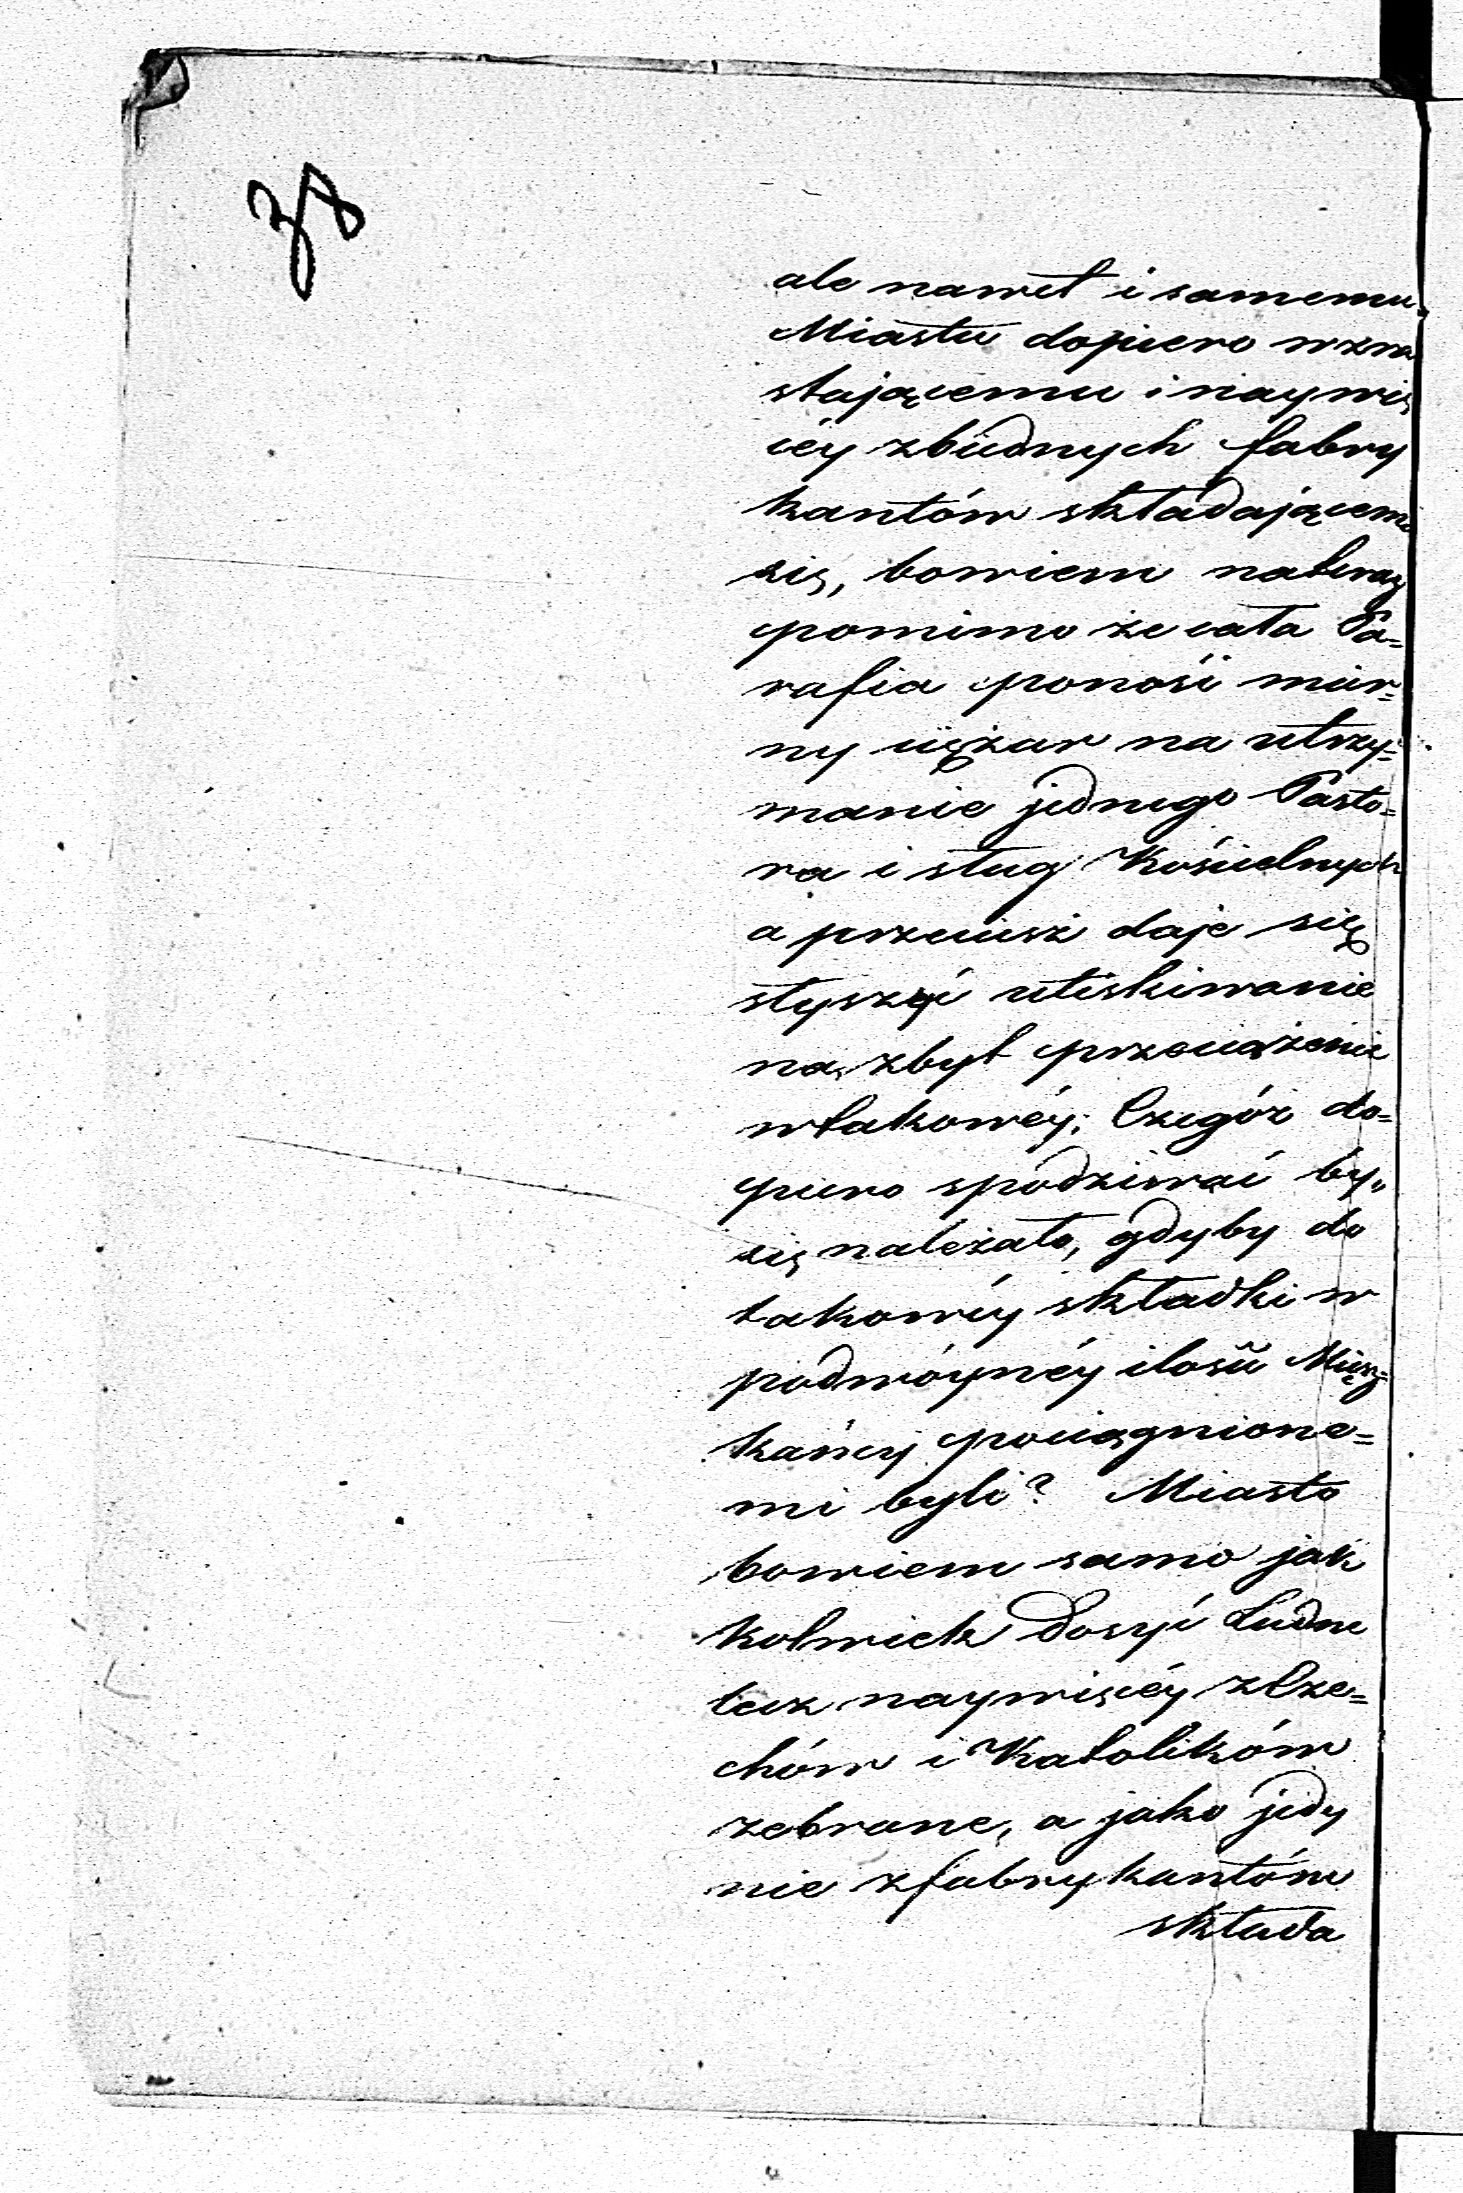 38
ale nawet i samemu
Miastu dopiero wzra
stającemu i naywię
céy zbiednych fabry
kantów składającemu
się, bowiem nateraz
pomimo że cała Pa=
rafia ponosi mier=
ny ciężar na utrzy=
manie jednego Pasto=
ra i sług Kościelnych
a przecież daje się
słyszyć utiskiwanie
na zbyt przeciążenie
wtakowéy; Czegóż do=
piero spodziewać by„
się należało, gdyby do
takowéy składki w
podwóynéy ilości Miesz=
kańcy pociągnione=
mi byli? Miasto
bowiem samo jak
kolwiek dosyć Ludne
lecz naywięcéy z Cze=
chów i Katolików
zebrane, a jako jedy
nie z fabrykantów
składa